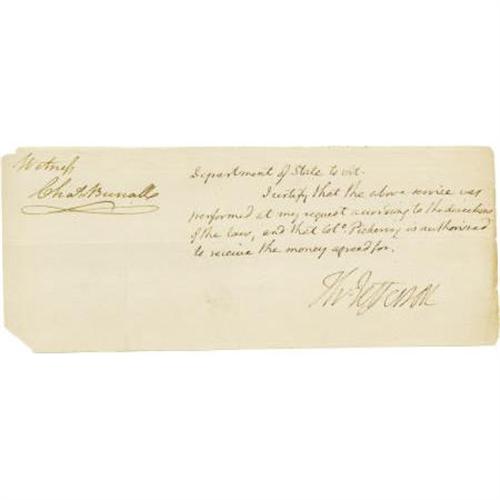 Witness
Chas. Burrall
Department of State to wit.
I certify that the above service was
performed at my request according to the directions
of the law, and that Colo. Pickering is authorised
to receive the money agreed for.
Th: Jefferson